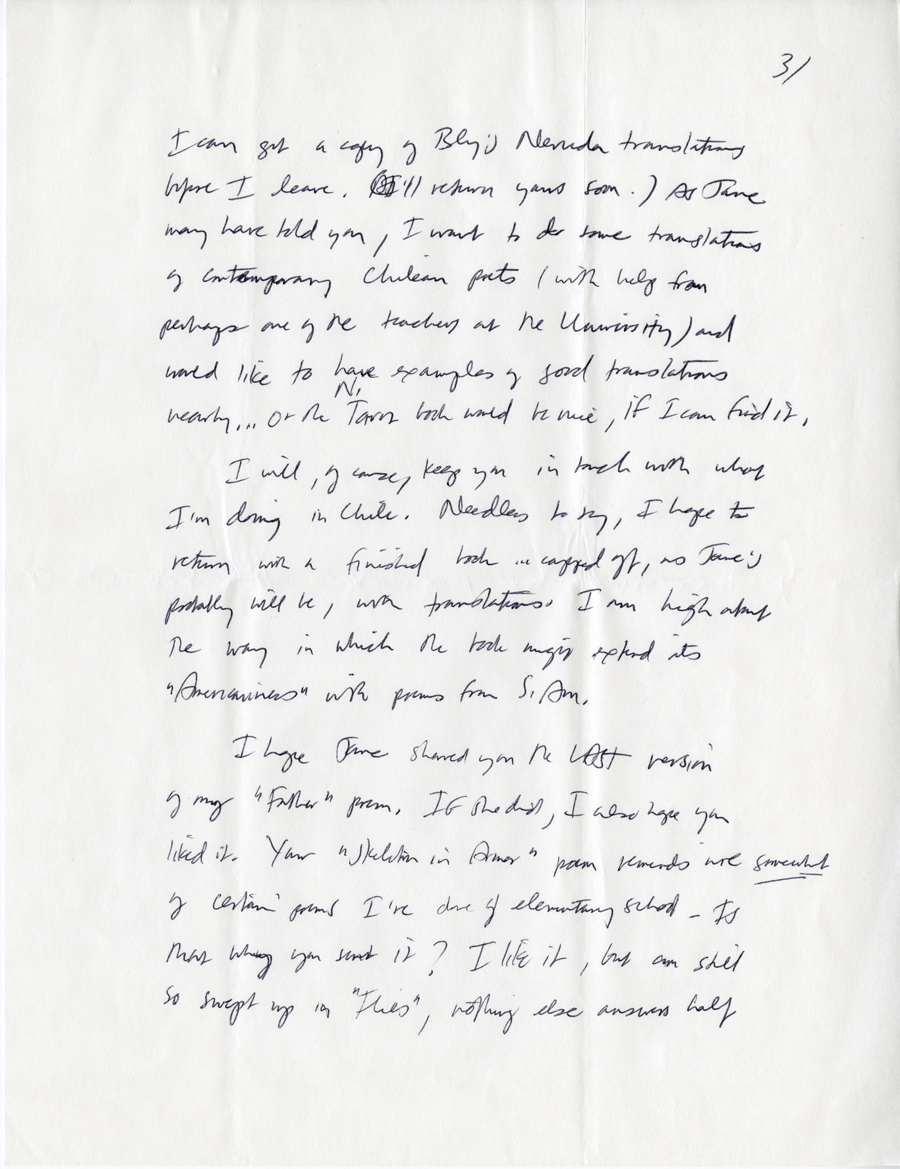 3/
I can get a copy of Bly's Neruda translations
before I leave. (I'll return yours soon.) As Jane
may have told you, I want to do some translations
of contemporary Chilean poets (with help from
perhaps one of the teachers at the University) and
would like to have examples of good translations
nearby... Or the N. Tarn book would be nice, if I can find it.
I will, of course, keep you in touch with what
I'm doing in Chile. Needless to say, I hope to
return with a finished book ... capped off, as Jane's
probably will be, with translations. I am high about
the way in which the book might extend its
"Americanness" with poems from S. Am.
I hope Jane showed you the LAST version
of my "Father" poem. If she did, I also hope you
liked it. Your "Skeleton in Armor" poem reminds me somewhat
of certain poems I've done of elementary school - Is
that why you sent it? I like it, but am still
so swept up in "Flies", nothing else answers half